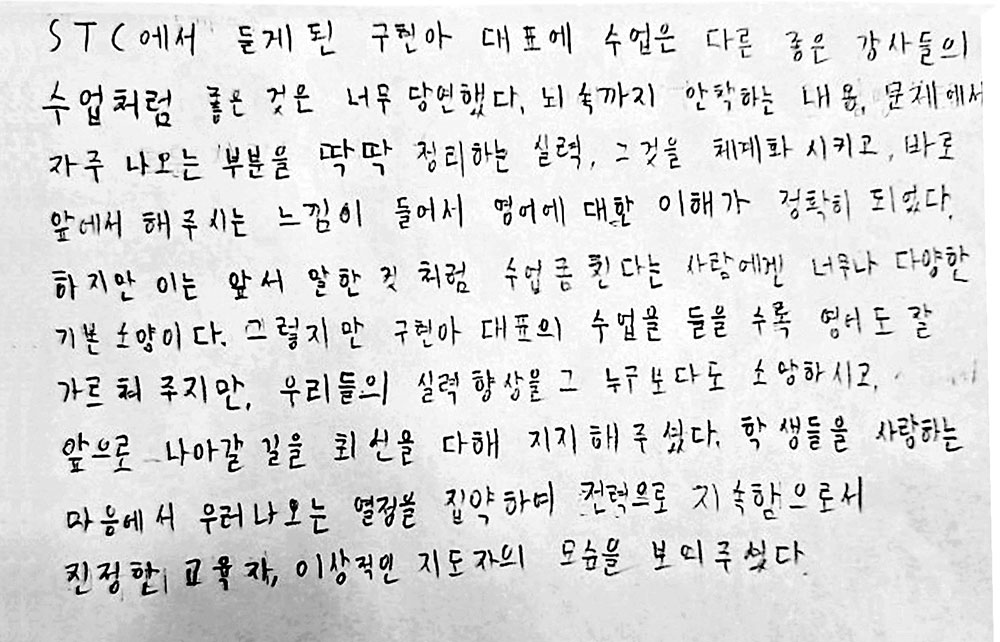 STC에서 듣게된 구현아 대표에 수업은 다른 좋은 강사들의
수업처럼 좋은 것은 너무 당연했다. 뇌 속까지 안착하는 내용, 문제에서
자주 나오는 부분을 딱딱 정리하는 실력, 그것을 체계화 시키고, 바로
앞에서 해주시는 느낌이 들어서 영어에 대한 이해가 정확히 되었다.
하지만 이는 앞서 말한 것 처럼 수업좀 한다는 사람에겐 너무나 다양한
기본 소양이다. 그렇지만 구현아 대표의 수업을 들을 수록 영어도 잘
가르쳐 주지만, 우리들의 실력향상을 그 누구보다도 소망하시고,
앞으로 나아갈 길을 최선을 다해 지지해주셨다. 학생들을 사랑하는
마음에서 우러나오는 열정을 집약하여 전력으로 지속함으로서
진정한 교육자, 이상적인 지도자의 모습을 보여주셨다.